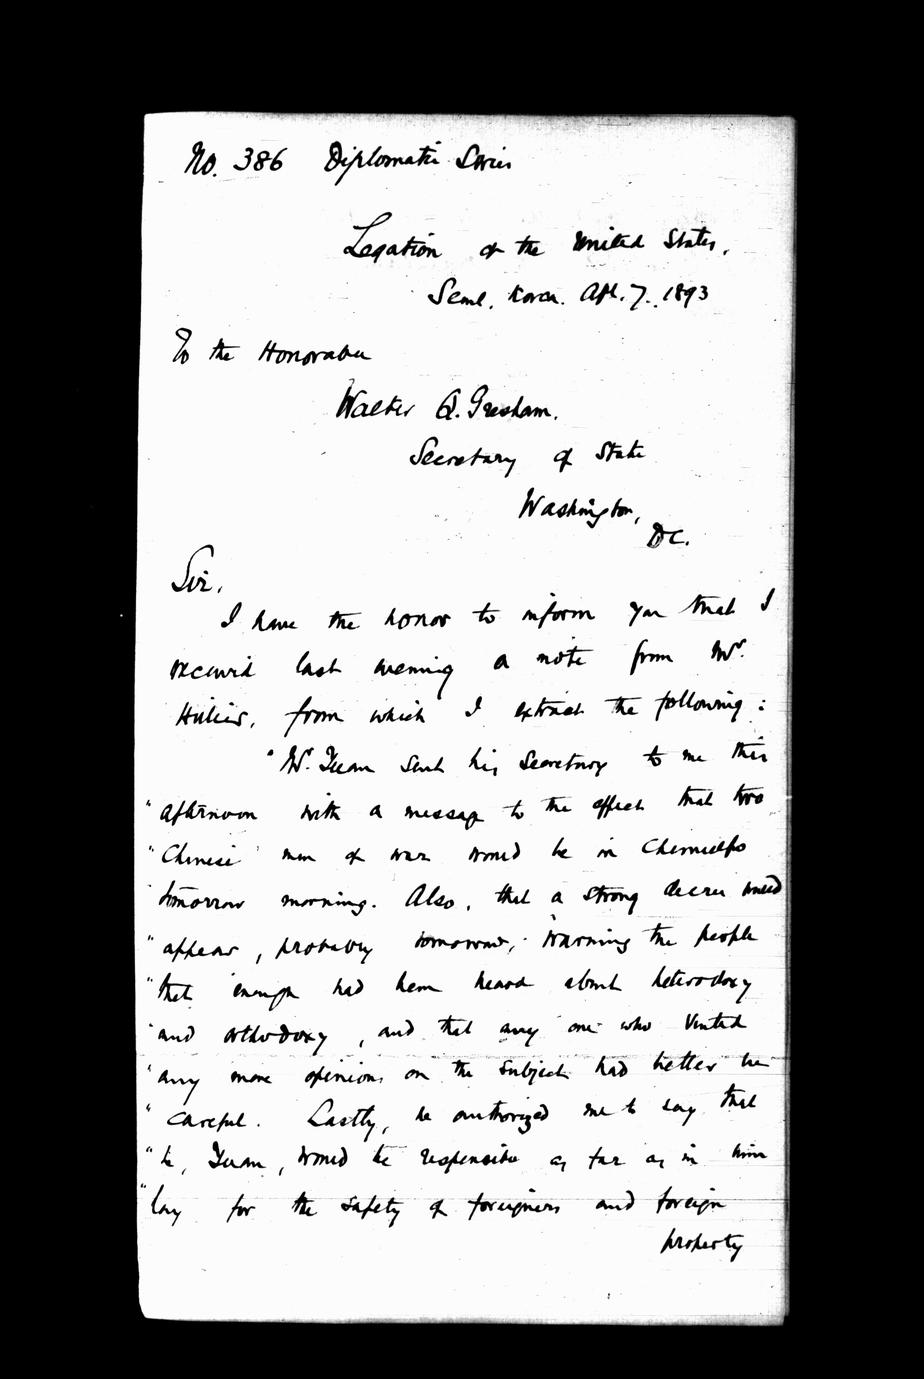 No. 386 Diplomatic Series
Legation of the United States,
Seoul, Korea. Apl. 7. 1893
To the Honorable
Walter Q. Gresham,
Secretary of State
Washington,
D.C.
Sir,
I have the honor to inform you that I
received last evening a note from Mr.
Hillier, from which I extract the following:
"Mr. Yuan sent his Secretary to me this
"afternoon with a message to the effect that two
"Chinese men of war would be in Chemulpo
"tomorrow morning. Also, that a strong decree would
"appear, probably tomorrow, warning the people
"that enough had been heard about heterodoxy
"and orthodoxy, and that any one who vented
"any more opinions on the subject had better be
"careful. Lastly, he authorized me to say that
"he, Yuan, would be responsible as far as in him
"lay for the safety of foreigners and foreign
property